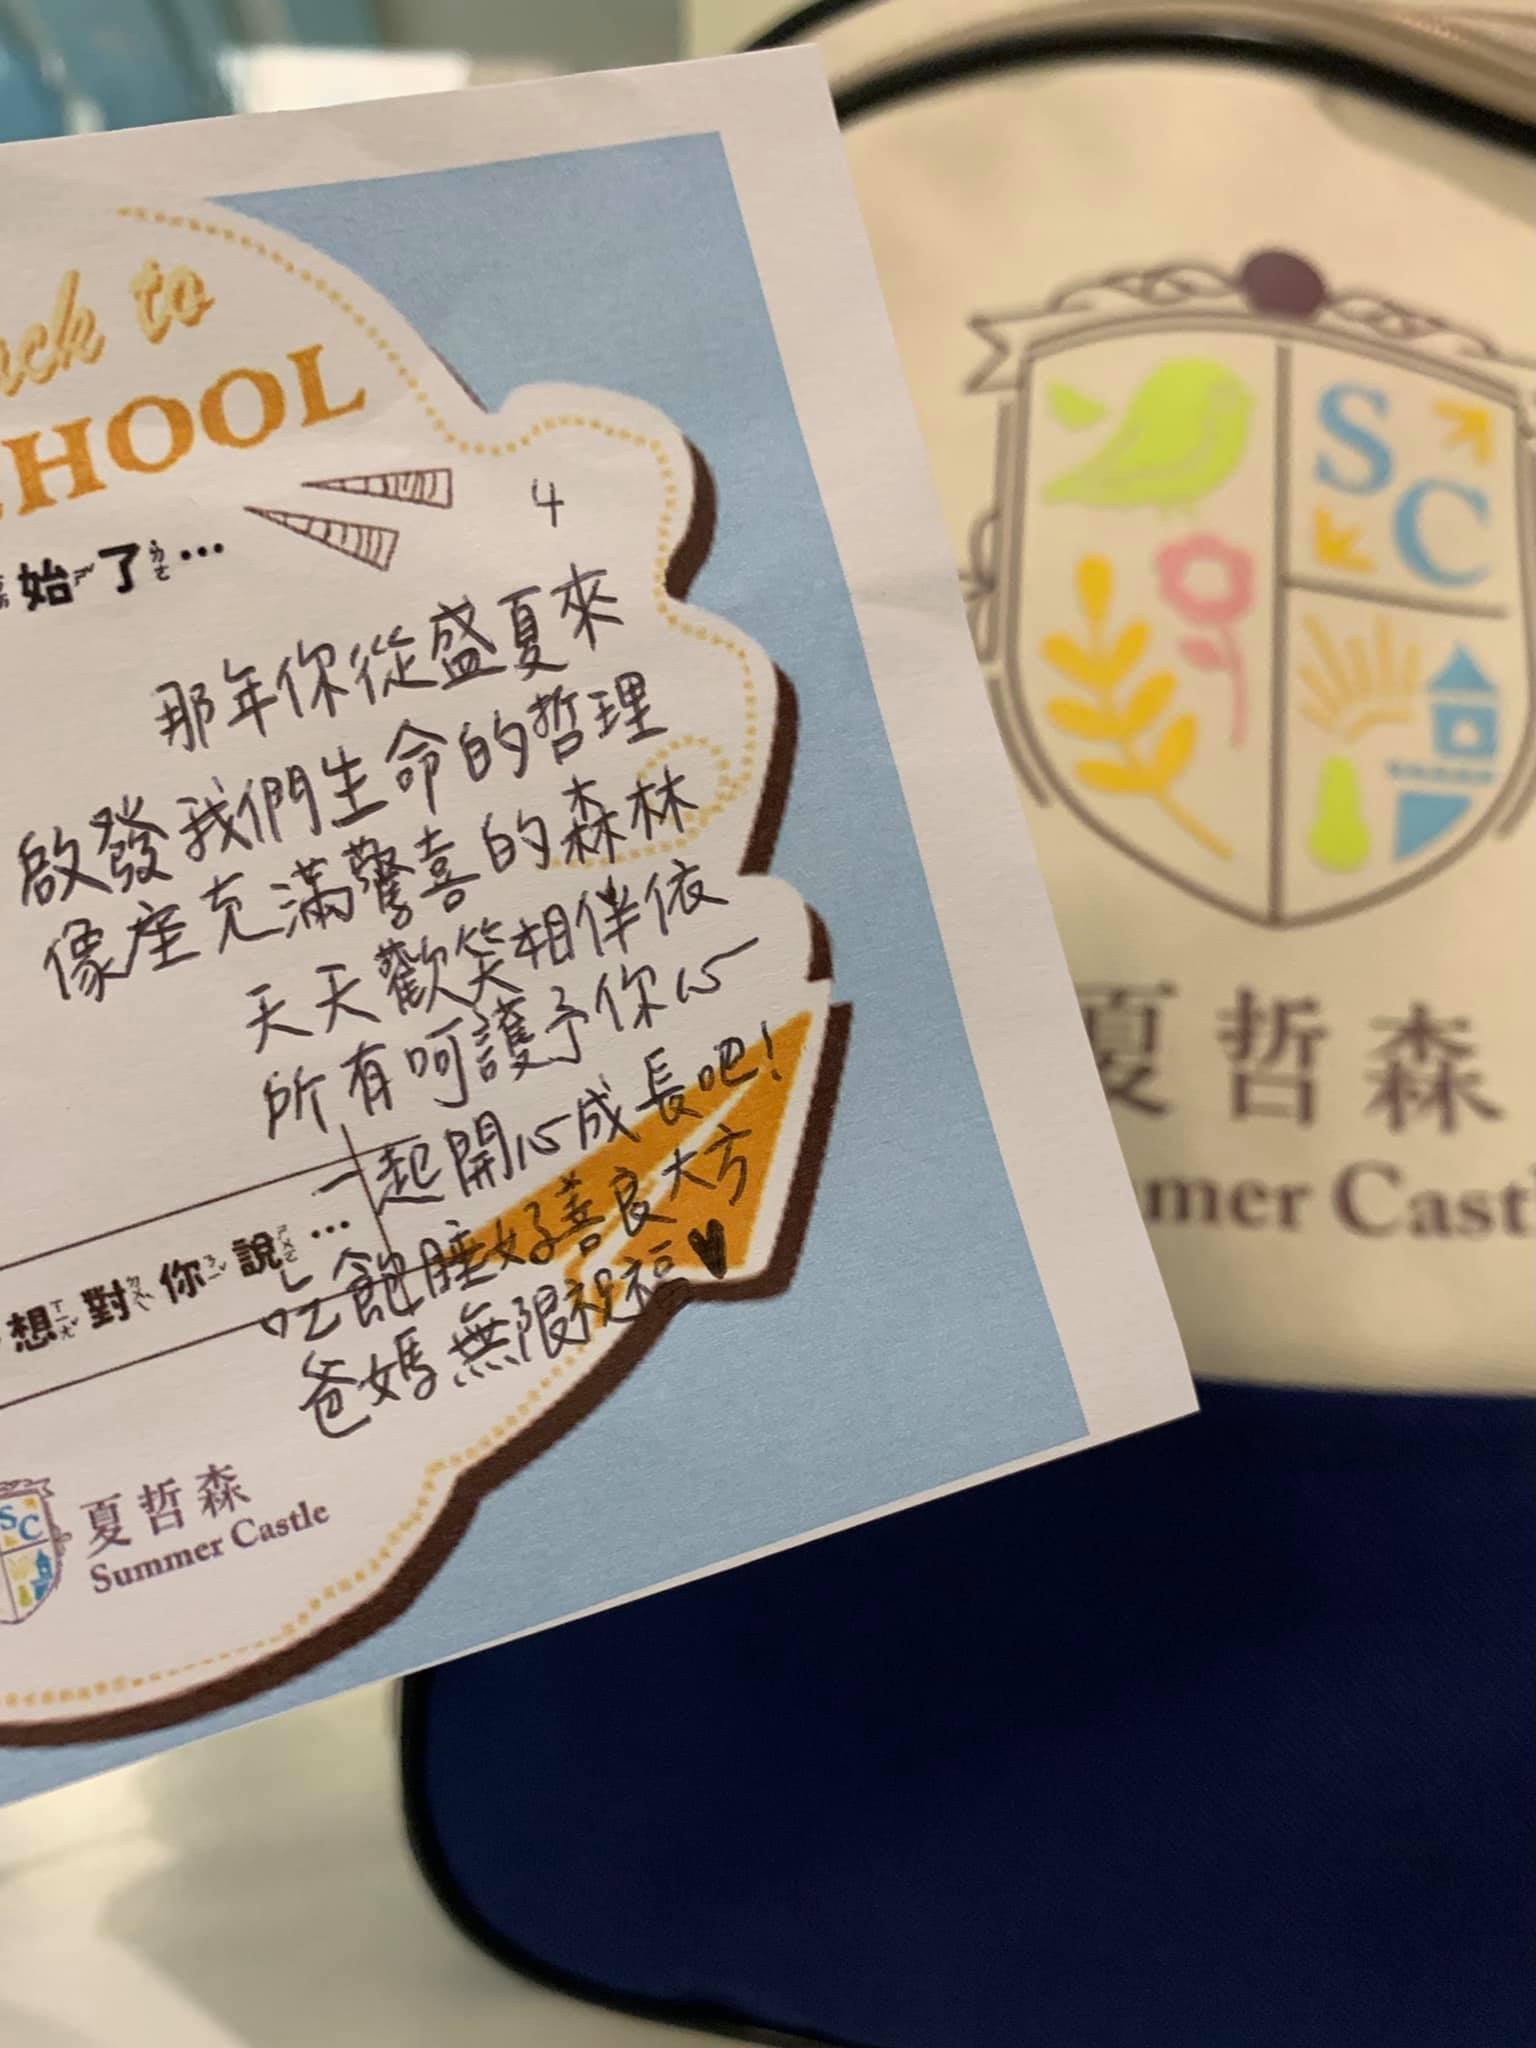 ck to
HOOL
始了…
4
那年你從盛夏來
啟發我們生命的哲理
像座充滿驚喜的森林
天天歡笑相伴依
所有呵護予你心
一起開心成長吧!
吃飽睡好善良大方
爸媽無限祝福♥
想對你說…
SC
夏哲森
Summer Castle
SC
夏哲森
mer Castl